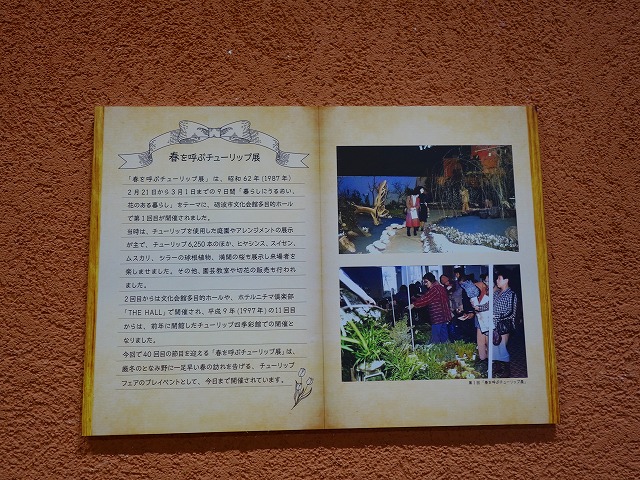 春を呼ぶチューリップ展
「春を呼ぶチューリップ展」は、昭和62年(1987年)
2月21日から3月1日までの9日間「暮らしにうるおい、
花のある暮らし」をテーマに、砺波市文化会館多目的ホール
で第1回目が開催されました。
当時は、チューリップを使用した庭園やアレンジメントの展示
が主で、チューリップ6,250本のほか、ヒヤシンス、スイセン、
ムスカリ、シラーの球根植物、満開の桜も展示し来場者を
楽しませました。その他、園芸教室や切花の販売も行われ
ました。
2回目からは文化会館多目的ホールや、ホテルニチマ倶楽部
「THE HALL」で開催され、平成9年(1997年)の11回目
からは、前年に開館したチューリップ四季彩館での開催と
なりました。
今回で40回目の節目を迎える「春を呼ぶチューリップ展」は、
厳冬のとなみ野に一足早い春の訪れを告げる、チューリップ
フェアのプレイベントとして、今日まで開催されています。
第1回「春を呼ぶチューリップ展」